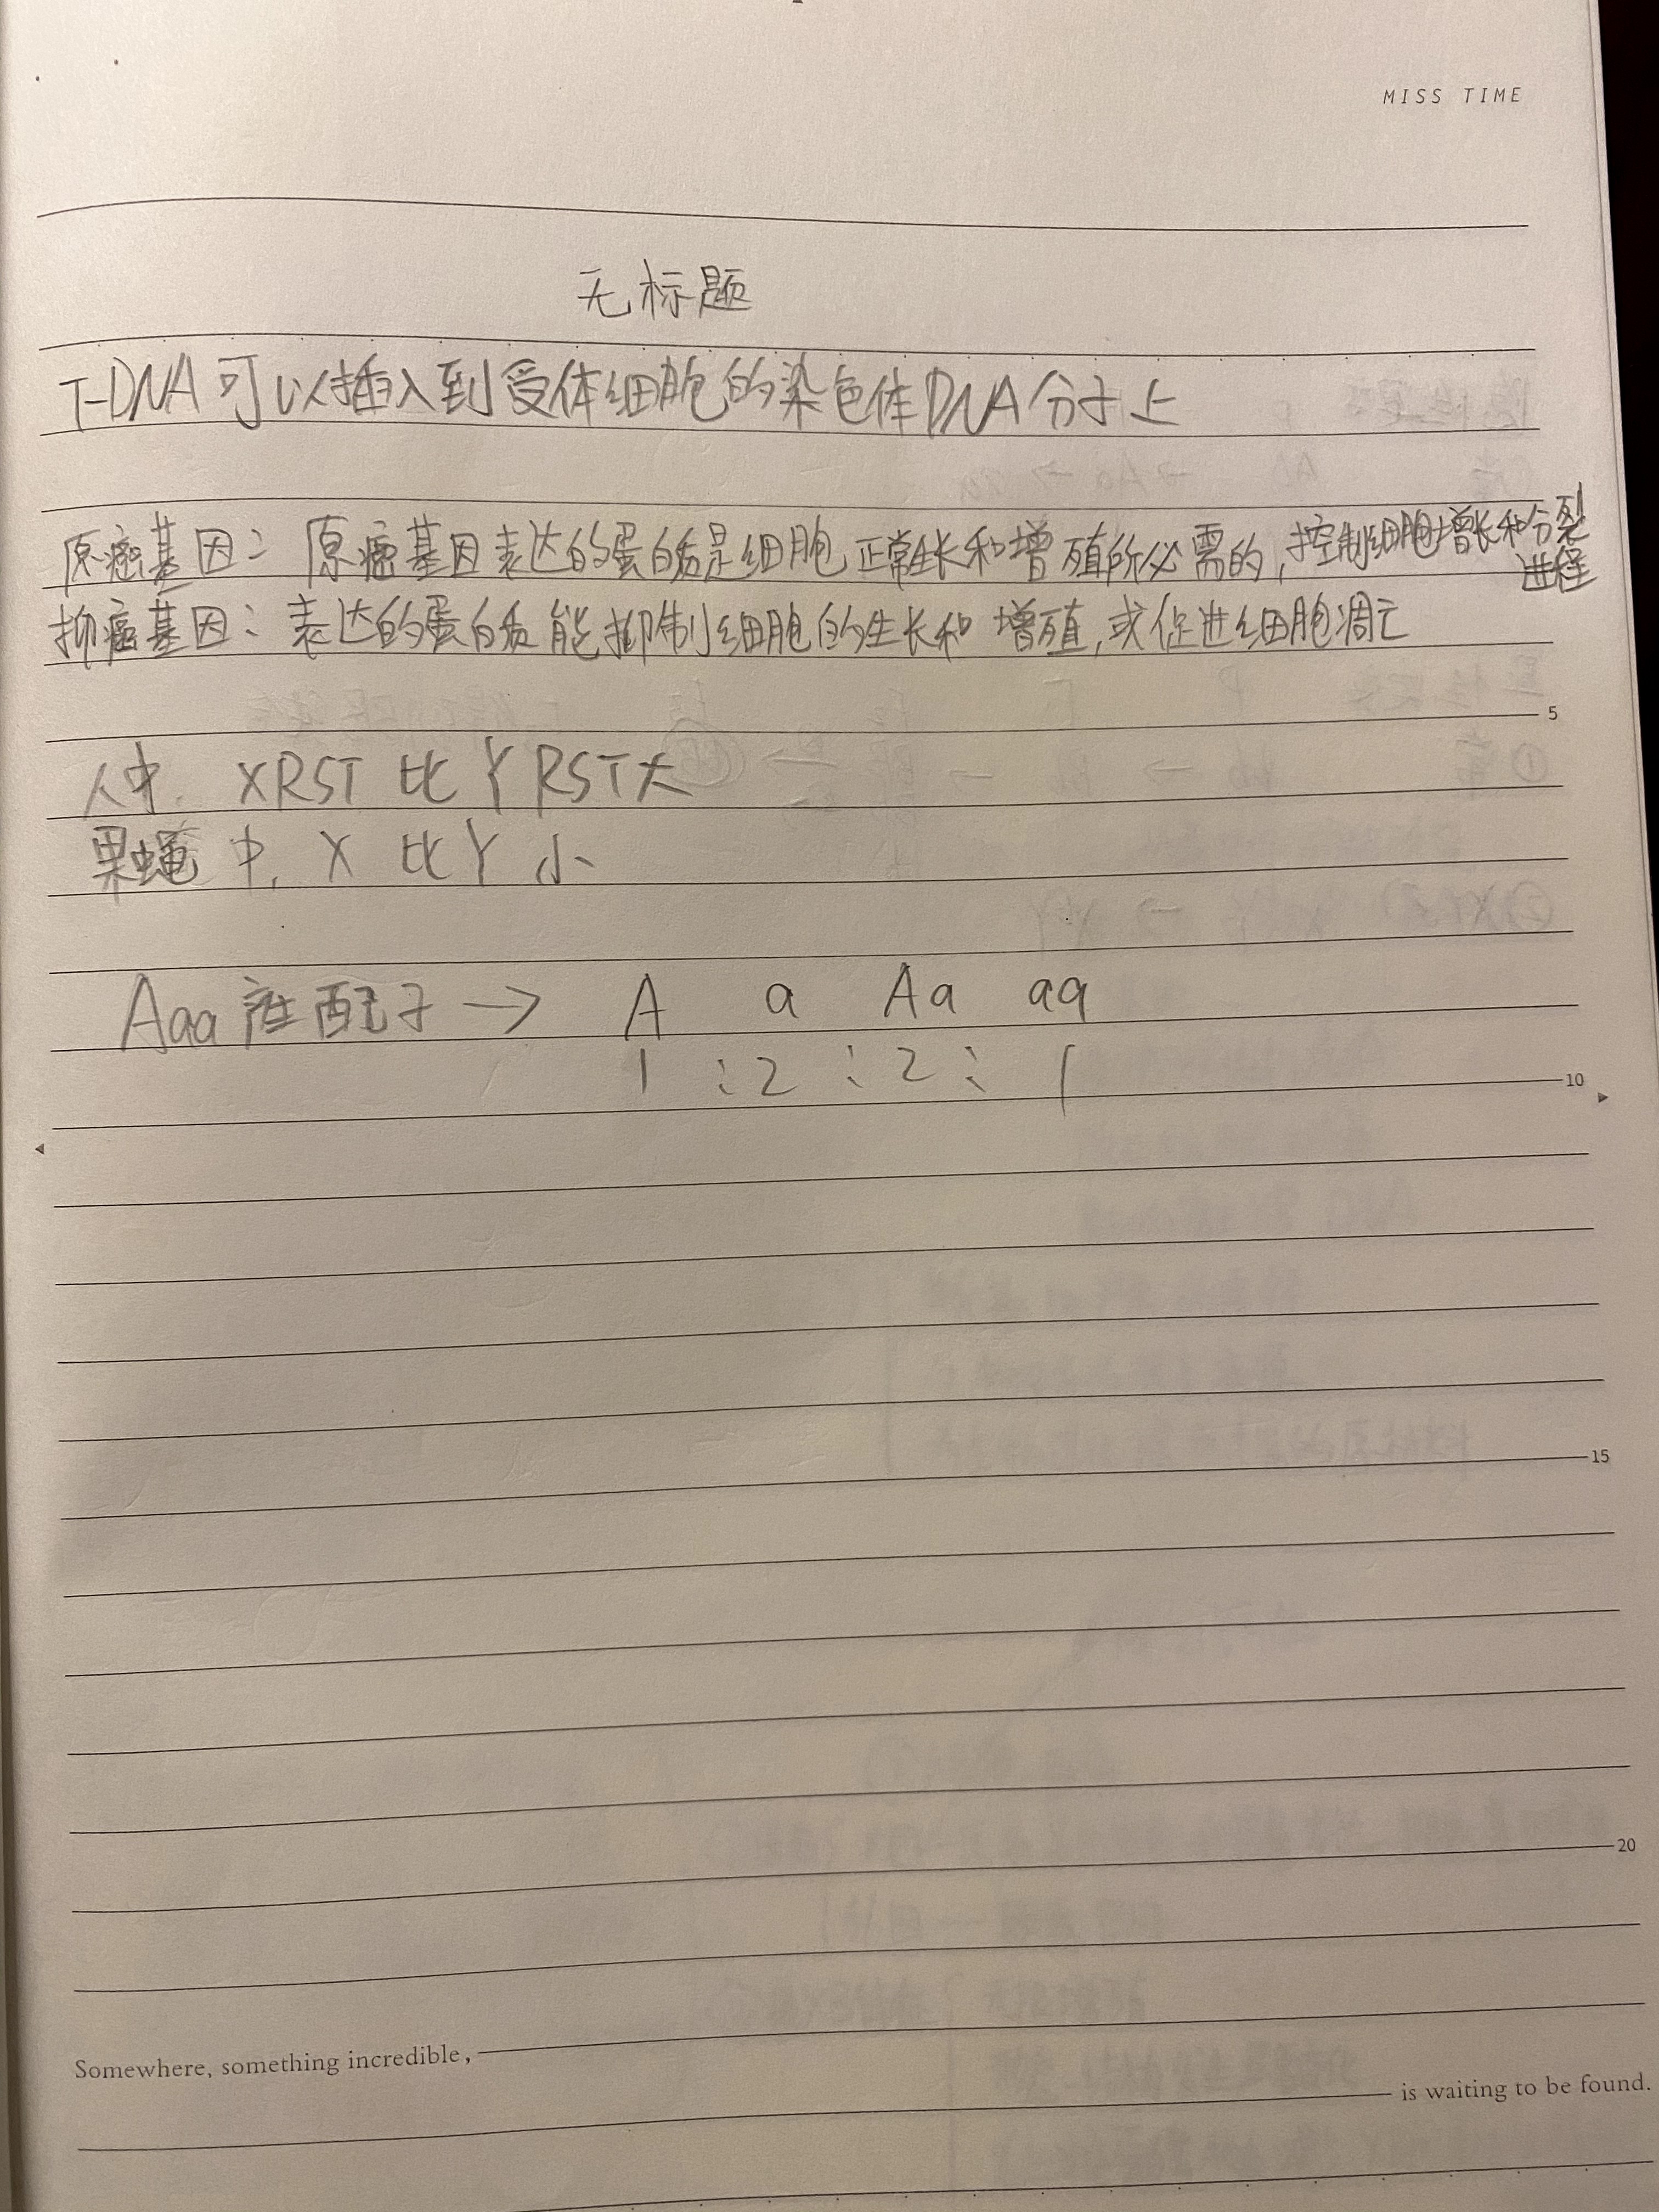 MISS TIME
无标题
T-DNA可以插入到受体细胞的染色体DNA分子上
原癌基因：原癌基因表达的蛋白质是细胞正常生长和增殖所必需的，控制细胞增长和分裂
进程
抑癌基因：表达的蛋白质能抑制细胞的生长和增殖，或促进细胞凋亡
5
人中，X RST 比 Y RST 大
果蝇中，X 比 Y 小
Aaa 产配子 → A a Aa aa
1 : 2 : 2 : 1
10
15
20
Somewhere, something incredible, is waiting to be found.